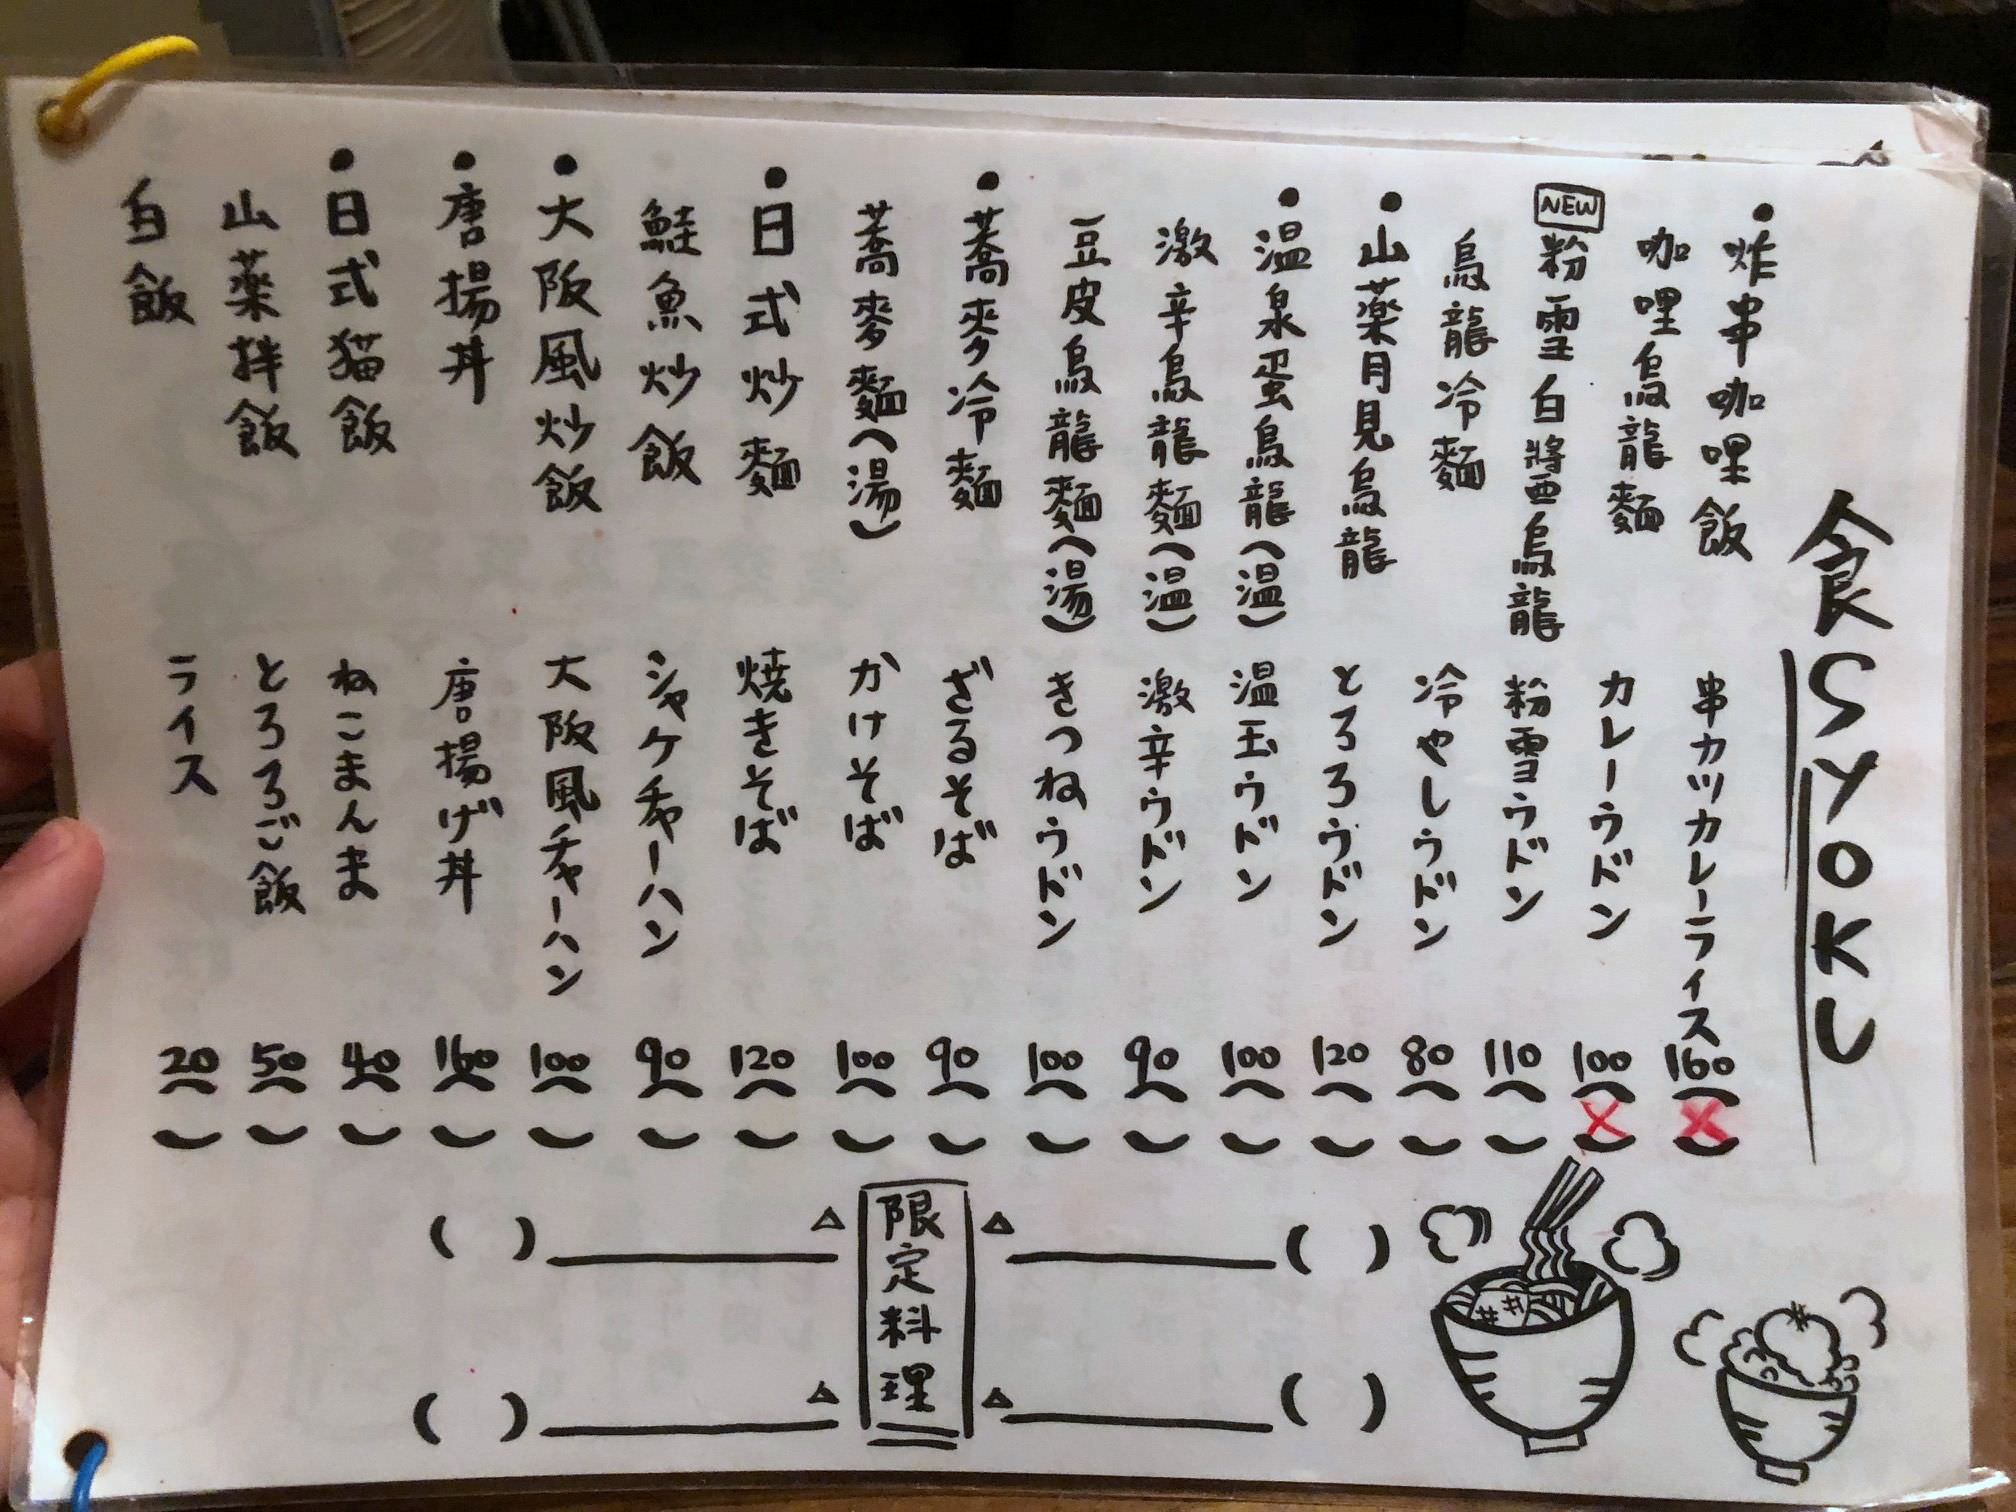 食 SyOKU
• 炸串咖哩飯 串カツカレーライス 160 ( X )
咖哩烏龍麵 カレーウドン 100 ( X )
NEW 粉雪白醬烏龍 粉雪ウドン 110 ( )
烏龍冷麵 冷やしウドン 80 ( )
• 山薬月見烏龍 とろろウドン 120 ( )
• 温泉蛋烏龍(温) 温玉ウドン 100 ( )
激辛烏龍麵(温) 激辛ウドン 90 ( )
豆皮烏龍麵(湯) きつねウドン 100 ( )
• 蕎麥冷麵 ざるそば 90 ( )
蕎麥麵(湯) かけそば 100 ( )
• 日式炒麵 焼きそば 120 ( )
鮭魚炒飯 シャケチャーハン 90 ( )
• 大阪風炒飯 大阪風チャーハン 100 ( )
• 唐揚丼 唐揚げ丼 160 ( )
• 日式猫飯 ねこまんま 40 ( )
山薬拌飯 とろろご飯 50 ( )
白飯 ライス 20 ( )
限定料理